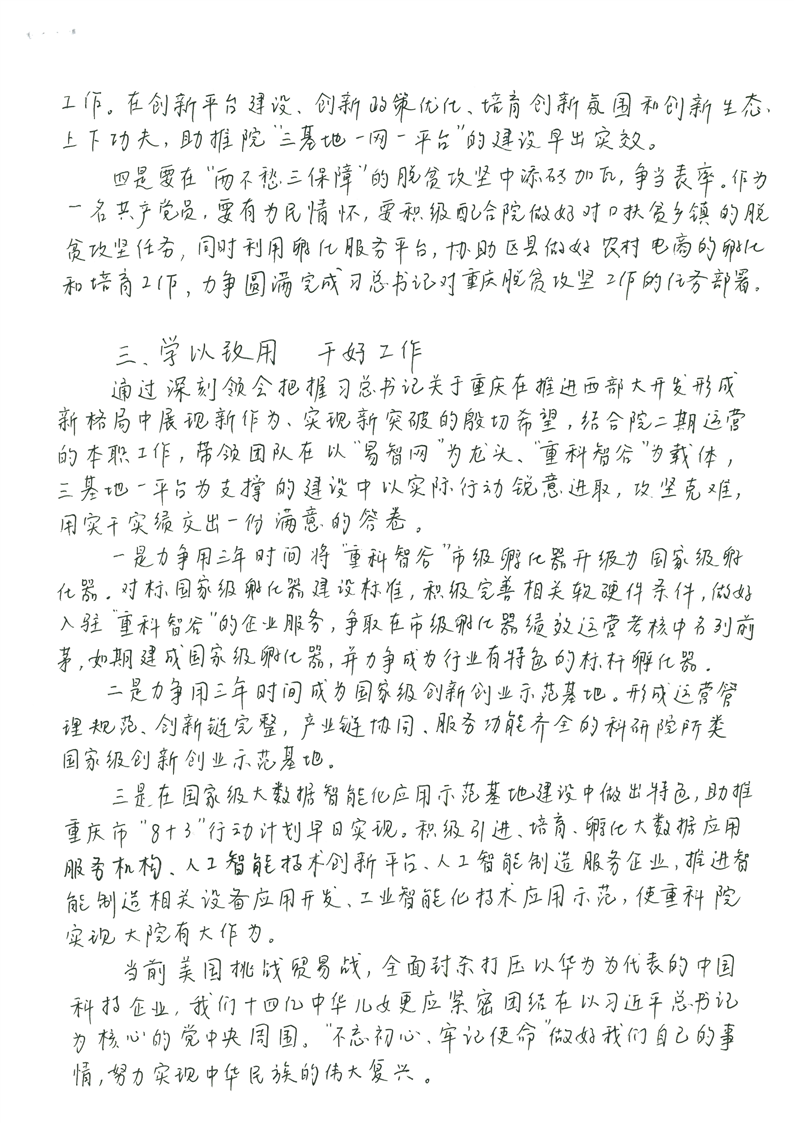 工作。在创新平台建设、创新政策优化、培育创新氛围和创新生态
上下功夫，助推院“三基地一网一平台”的建设早出实效。
四是要在“两不愁三保障”的脱贫攻坚中添砖加瓦，争当表率。作为
一名共产党员，要有为民情怀，要积极配合院做好对口扶贫乡镇的脱
贫攻坚任务，同时利用孵化服务平台，协助区县做好农村电商的孵化
和培育工作，力争圆满完成习总书记对重庆脱贫攻坚工作的任务部署。
三、学以致用 干好工作
通过深刻领会把握习总书记关于重庆在推进西部大开发形成
新格局中展现新作为、实现新突破的殷切希望，结合院二期运营
的本职工作，带领团队在以“易智网”为龙头、“重科智谷”为载体，
三基地一平台为支撑的建设中以实际行动锐意进取，攻坚克难，
用实干实绩交出一份满意的答卷。
一是力争用三年时间将“重科智谷”市级孵化器升级为国家级孵
化器。对标国家级孵化器建设标准，积极完善相关软硬件条件，做好
入驻“重科智谷”的企业服务，争取在市级孵化器绩效运营考核中名列前
茅，如期建成国家级孵化器，并力争成为行业有特色的标杆孵化器。
二是力争用三年时间成为国家级创新创业示范基地。形成运营管
理规范、创新链完整，产业链协同、服务功能齐全的科研院所类
国家级创新创业示范基地。
三是在国家级大数据智能化应用示范基地建设中做出特色，助推
重庆市“8+3”行动计划早日实现。积极引进、培育、孵化大数据应用
服务机构、人工智能技术创新平台、人工智能制造服务企业，推进智
能制造相关设备应用开发、工业智能化技术应用示范，使重科院
实现大院有大作为。
当前美国挑战贸易战，全面封杀打压以华为为代表的中国
科技企业，我们十四亿中华儿女更应紧密团结在以习近平总书记
为核心的党中央周围。“不忘初心、牢记使命”做好我们自己的事
情，努力实现中华民族的伟大复兴。